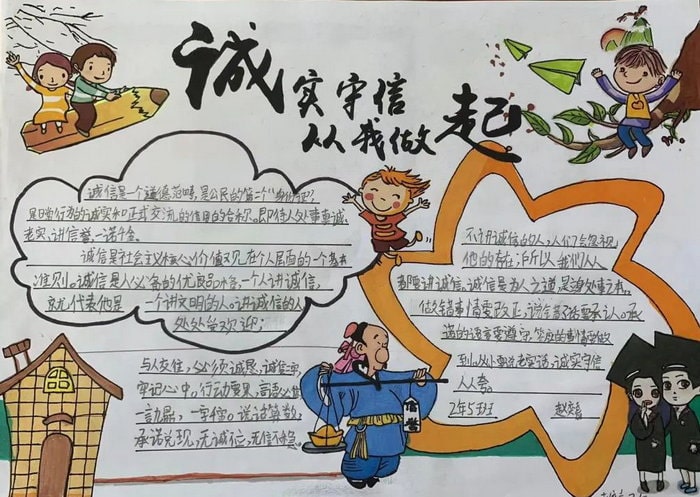 诚实守信
从我做起
诚信是一个道德范畴,是公民的第二个"身份证",
是日常行为的诚实和正式交流的信用的合称。即待人处事真诚、
老实、讲信誉,一诺千金。
诚信是社会主义核心价值观在个人层面的一个基本
准则。诚信是人必备的优良品格,一个人讲诚信,
就代表他是一个讲文明的人。讲诚信的人,
处处受欢迎;
与人交往,必须诚恳,诚信
牢记心中。行动要果,言必
一言九鼎,一字值。说话算数,
承诺兑现,无诚位,无信不稳。
不讲诚信的人,人们会忽视
他的存在;所以我们人人
都要讲诚信。诚信是为人之道,是立身处事之本。
做错事情要改正,说错话要承认。承
诺的语言要遵守,答应的事情要做
到。从小要说老实话,诚实守信
人人夸。
2年5班 赵
信誉